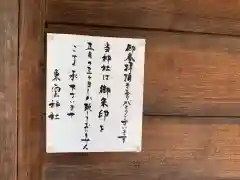 御参拝頂きありがとうございます
当神社は御朱印を
五月の しか ておりません
ご了承下さいませ
神社